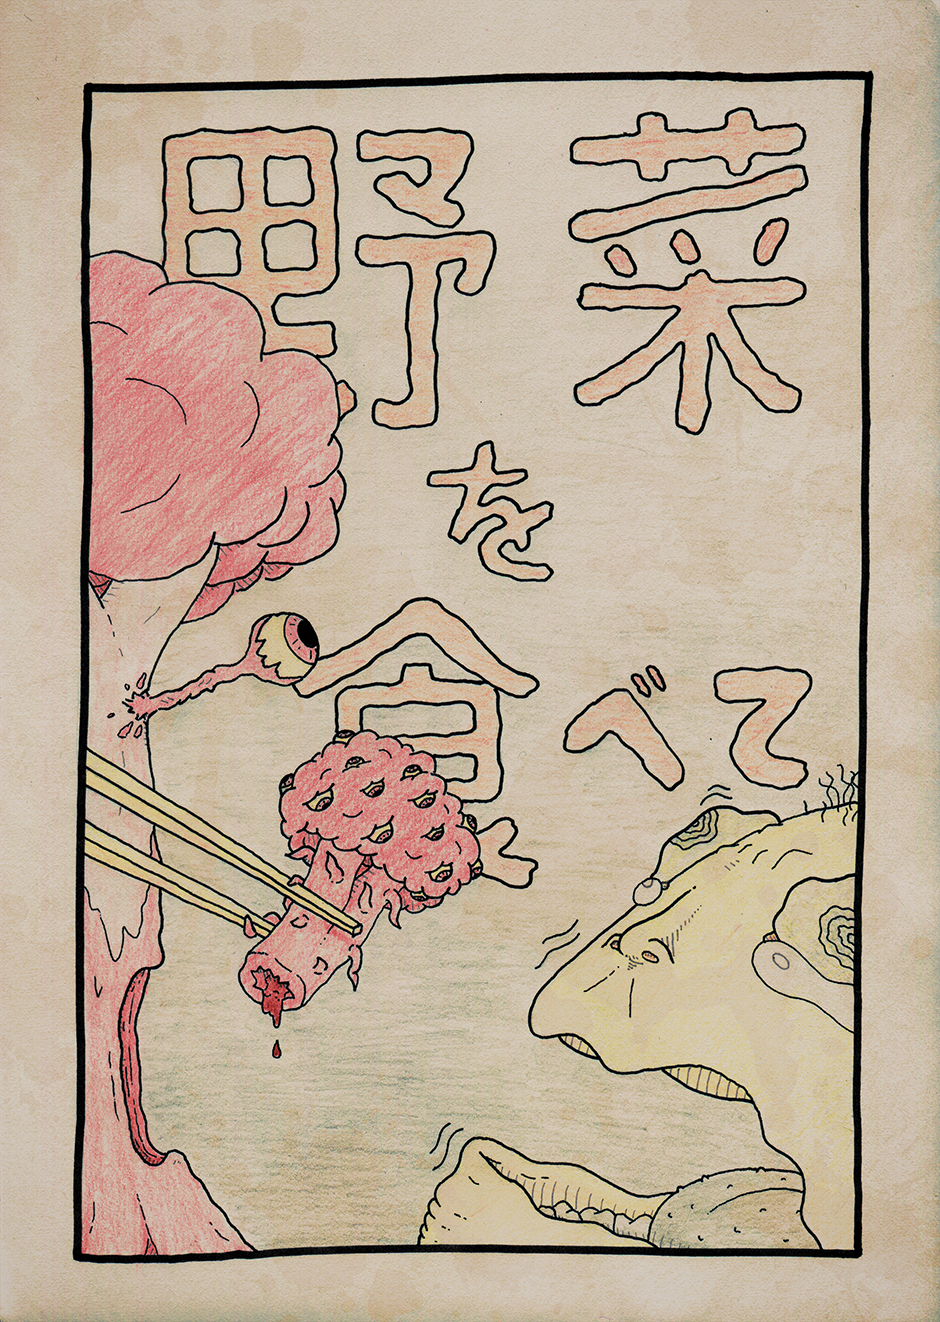 野菜
を
食べて